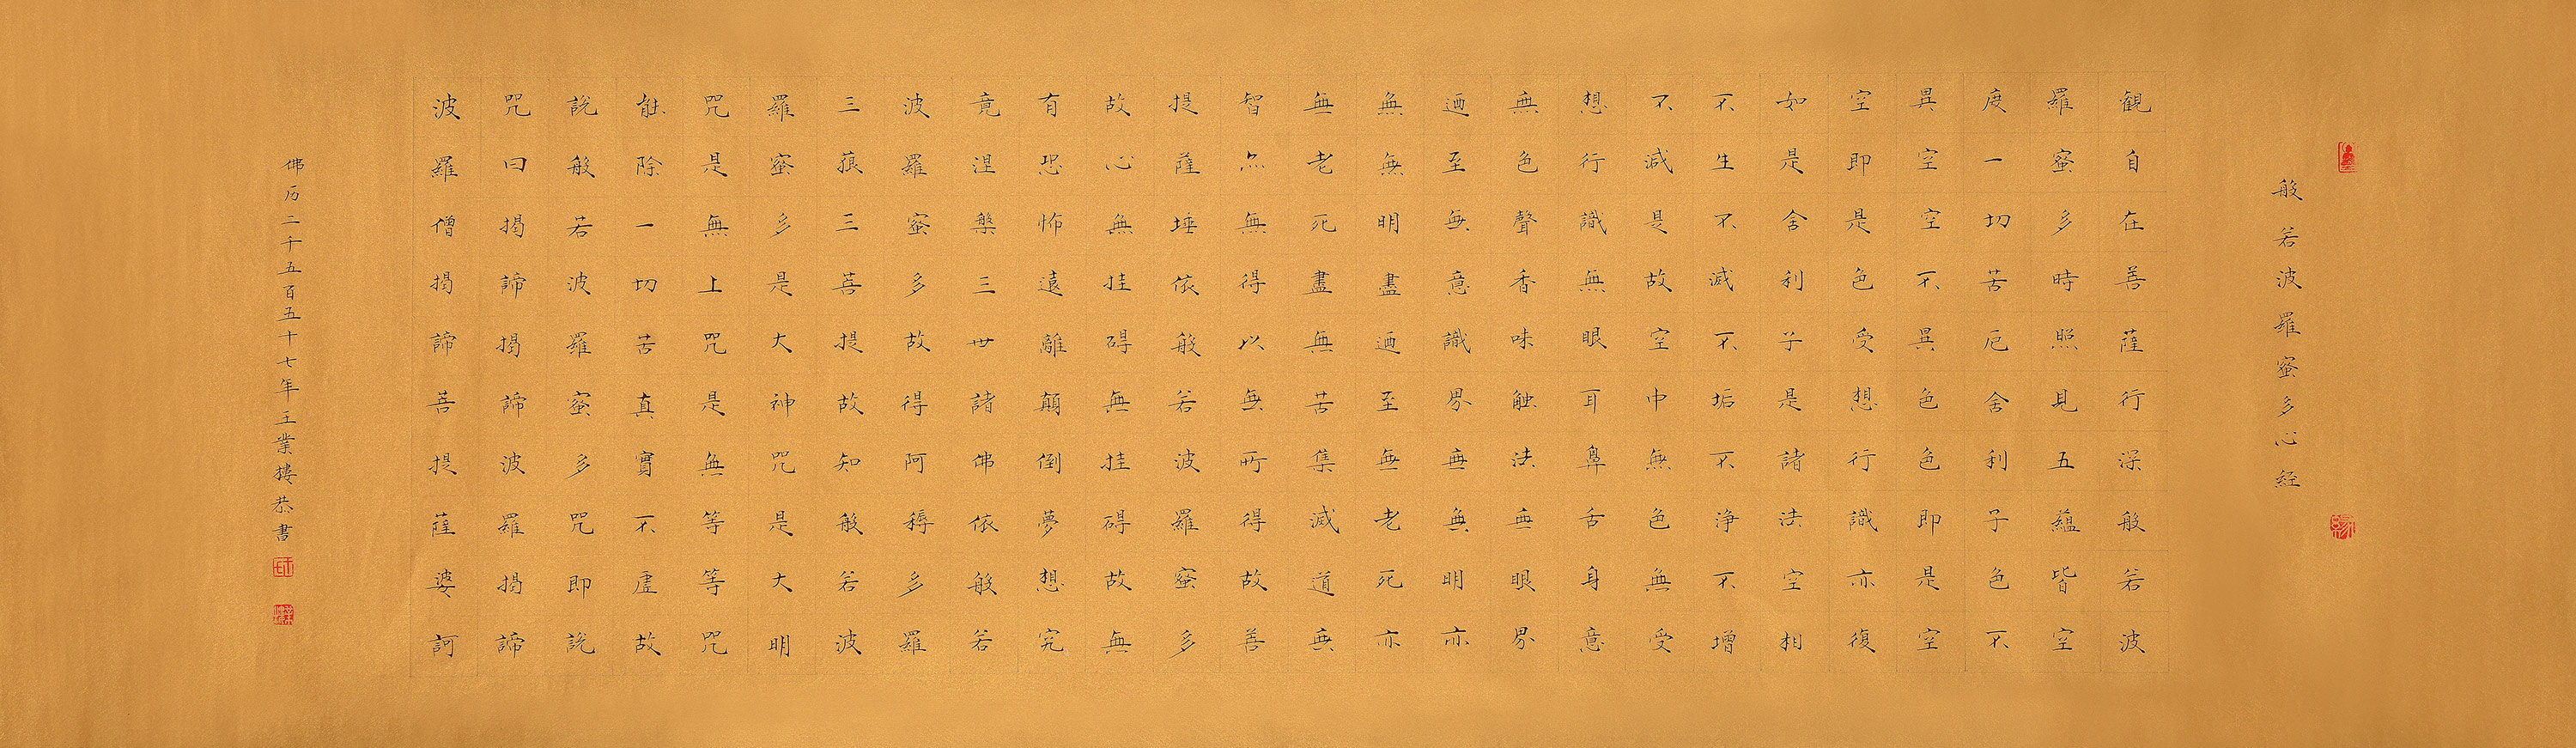 般若波羅蜜多心経
観自在菩薩行深般若波
羅蜜多時照見五蘊皆空
度一切苦厄舍利子色不
異空空不異色色即是空
空即是色受想行識亦復
如是舍利子是諸法空相
不生不滅不垢不浄不增
不減是故空中無色無受
想行識無眼耳鼻舌身意
無色聲香味触法無眼界
迺至無意識界無無明亦
無無明盡迺至無老死亦
無老死盡無苦集滅道無
智亦無得以無所得故菩
提薩埵依般若波羅蜜多
故心無挂碍無挂碍故無
有恐怖遠離顛倒夢想究
竟涅槃三世諸佛依般若
波羅蜜多故得阿耨多羅
三藐三菩提故知般若波
羅蜜多是大神咒是大明
咒是無上咒是無等等咒
能除一切苦真實不虛故
說般若波羅蜜多咒即說
咒曰揭諦揭諦波羅揭諦
波羅僧揭諦菩提薩婆訶
佛历二千五百五十七年王業樓恭書